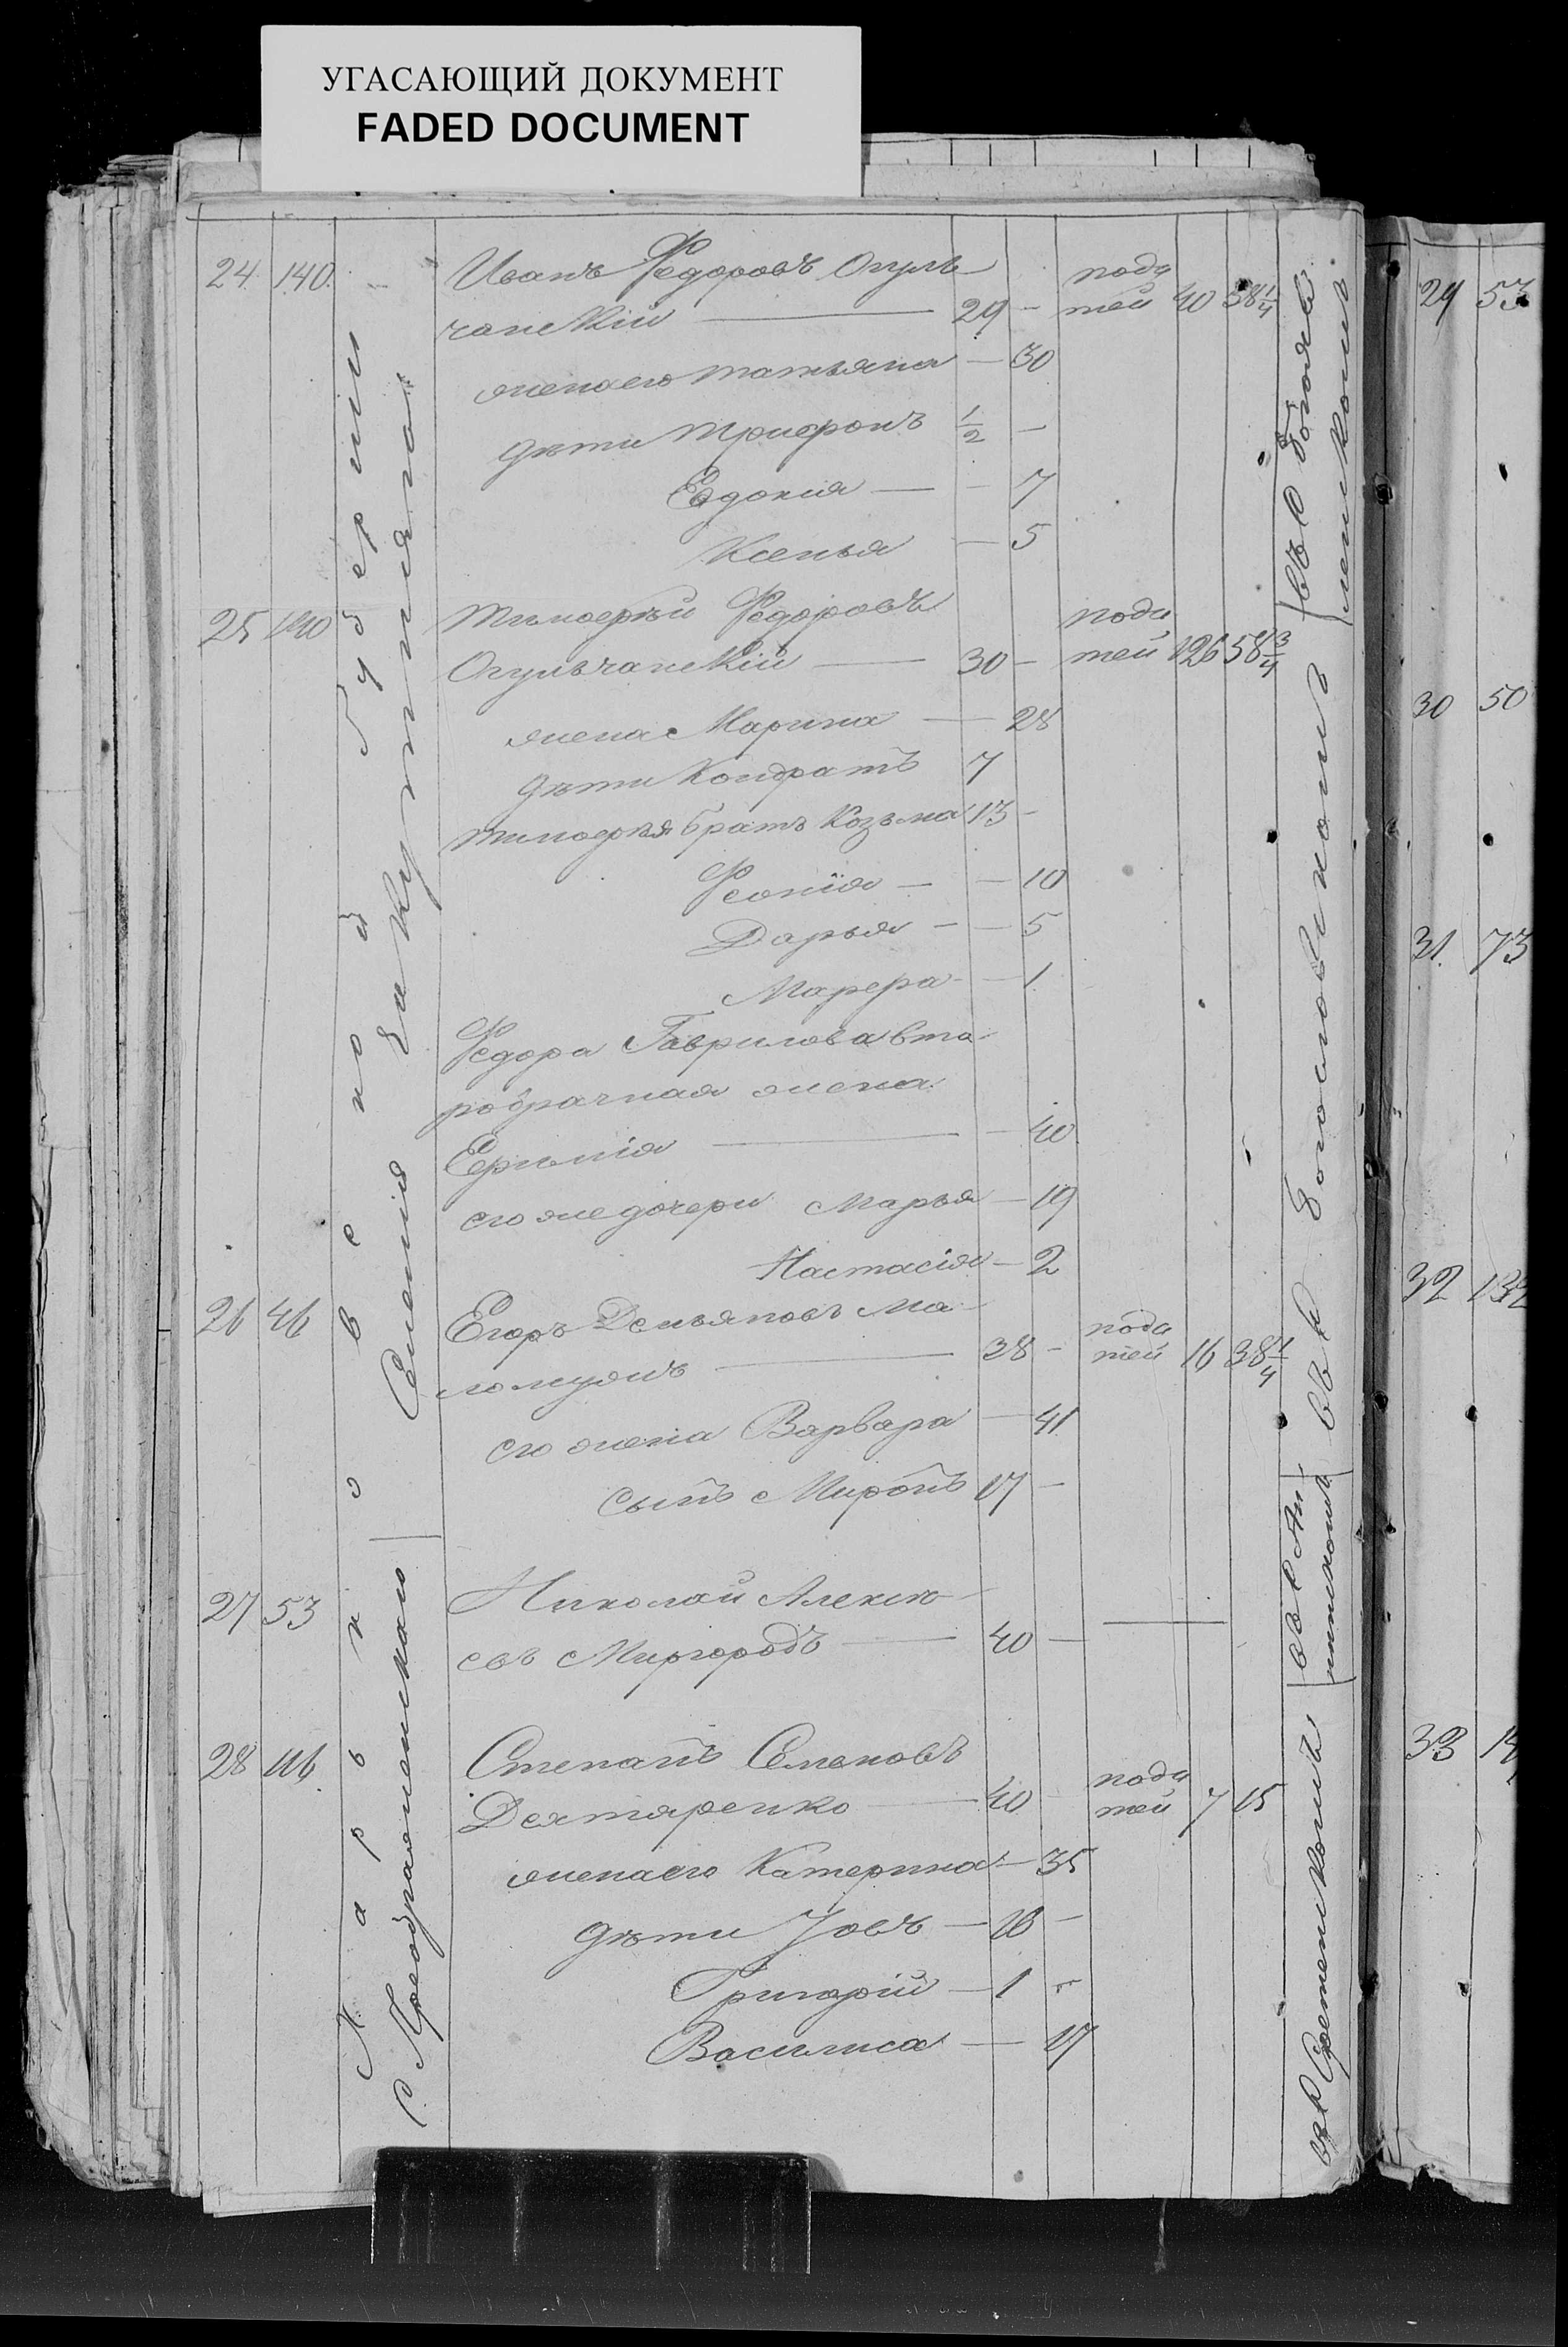 УГАСАЮЩИЙ ДОКУМЕНТ
FADED DOCUMENT
24. 140. Иванъ Федоровъ Огуль-
чанскiй — 29 - пода
тей 40 38 1/4
жена его Татьяна — 30
дѣти Трифонъ 1/2 —
Евдокия — - 7
Ксенья — 5
25 140 Тимофѣй Федоровъ
Огульчанскiй — 30 - пода
тей 126 58 3/4
жена Марина — 28
дѣти Кондратъ 7
Тимофѣя братъ Козьма 13 -
Феонiя — — 10
Дарья - — 5
Марфа - — 1
Федора Гаврилова вто-
робрачная жена
Ефимiя — - 40
его же дочери Марья — 19
Настасiя — 2
26 46 Егоръ Демьяновъ Ма-
ломужъ — 38 - пода
тей 16 38 1/4
его жена Варвара — 41
сынъ Миронъ 17 —
27 53 Николай Алексѣ-
евъ Миргородъ — 40 —
28 116. Степанъ Семеновъ
Дехтяренко — 40 - пода
тей 7 15
жена его Катерина — 35
дѣти Iовъ — 10 —
Григорiй — 1 -
Василиса — 17
Харьковской Губернiи
С. Преображенскаго
Селенiя
29 53
30 50
31. 73
32 132
33